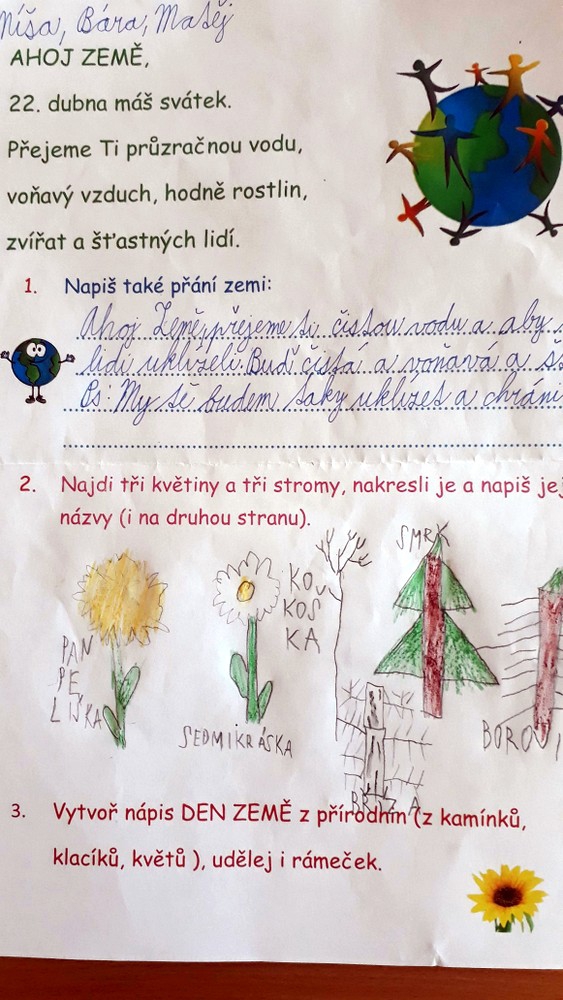 Míša, Bára, Matěj
AHOJ ZEMĚ,
22. dubna máš svátek.
Přejeme Ti průzračnou vodu,
voňavý vzduch, hodně rostlin,
zvířat a šťastných lidí.
1. Napiš také přání zemi:
Ahoj Země, přejeme ti čistou vodu a aby
lidi uklízeli. Buď čistá a voňavá a
Ps: My tě budem taky uklízet a chráni
2. Najdi tři květiny a tři stromy, nakresli je a napiš jej
názvy (i na druhou stranu).
PAN
PE
LIŠKA
SEDMIKRÁSKA
KO
KOŠ
KA
SMRK
BOROVI
BŘÍZA
3. Vytvoř nápis DEN ZEMĚ z přírodnin (z kamínků,
klacíků, květů ), udělej i rámeček.